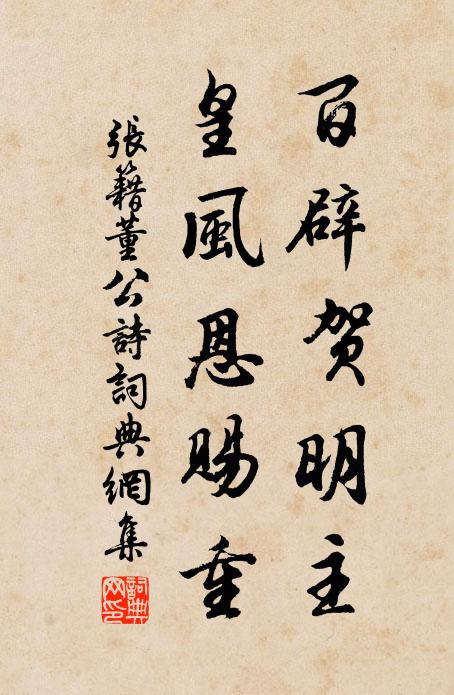 百辟贺明主
皇風恩賜重
張籍董公詩詞典網集
詞典
网印